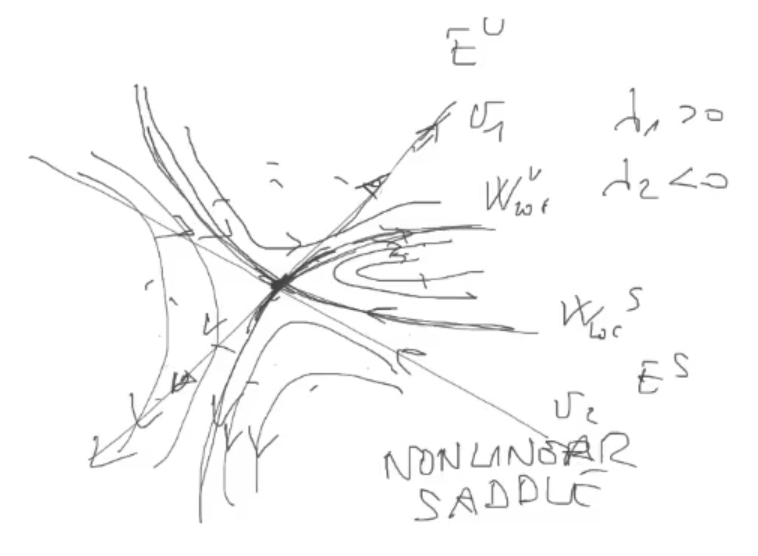 E^U
v_1
λ_1 > 0
λ_2 < 0
W_loc^U
W_loc^S
E^S
v_2
NONLINEAR
SADDLE